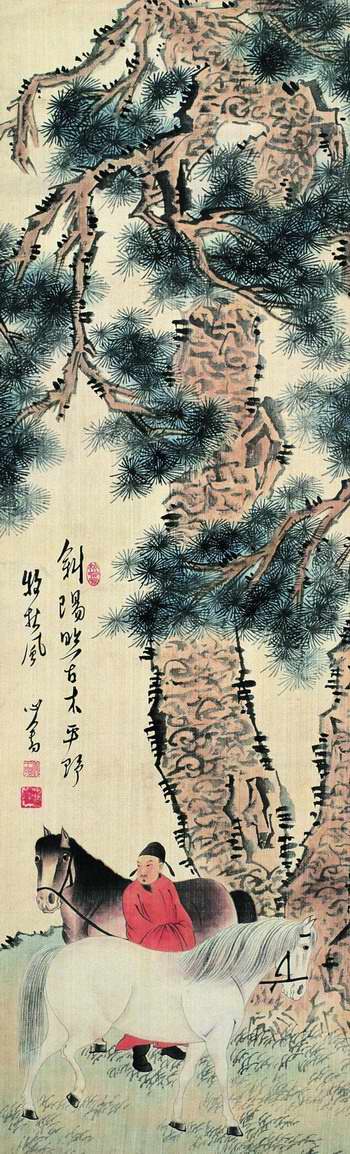 斜陽照古木平野
牧秋風 心畬